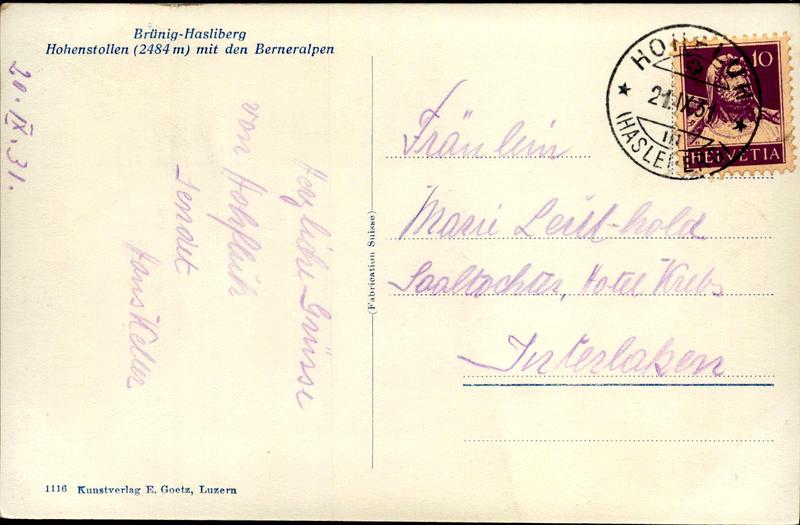 Brünig-Hasliberg
Hohenstollen (2484 m) mit den Berneralpen
20. IX. 31.
Herzliche Grüsse
von Hohfluh
sendet
Hans Keller
(Fabrication Suisse)
HOHFLUH
21.IX.31
(HASLEBERG)
10
HELVETIA
Fräulein
Marie Leut-hold
Saaltochter, Hotel Krebs
Interlaken
1116 Kunstverlag E. Goetz, Luzern